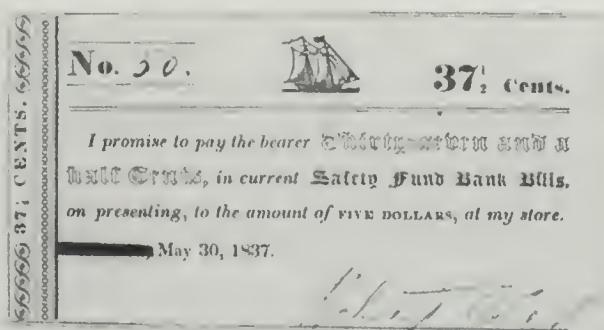 37½ CENTS.
No. 50.
37½ Cents.
I promise to pay the bearer Thirty-seven and a
half Cents, in current Safety Fund Bank Bills,
on presenting, to the amount of FIVE DOLLARS, at my store.
May 30, 1837.